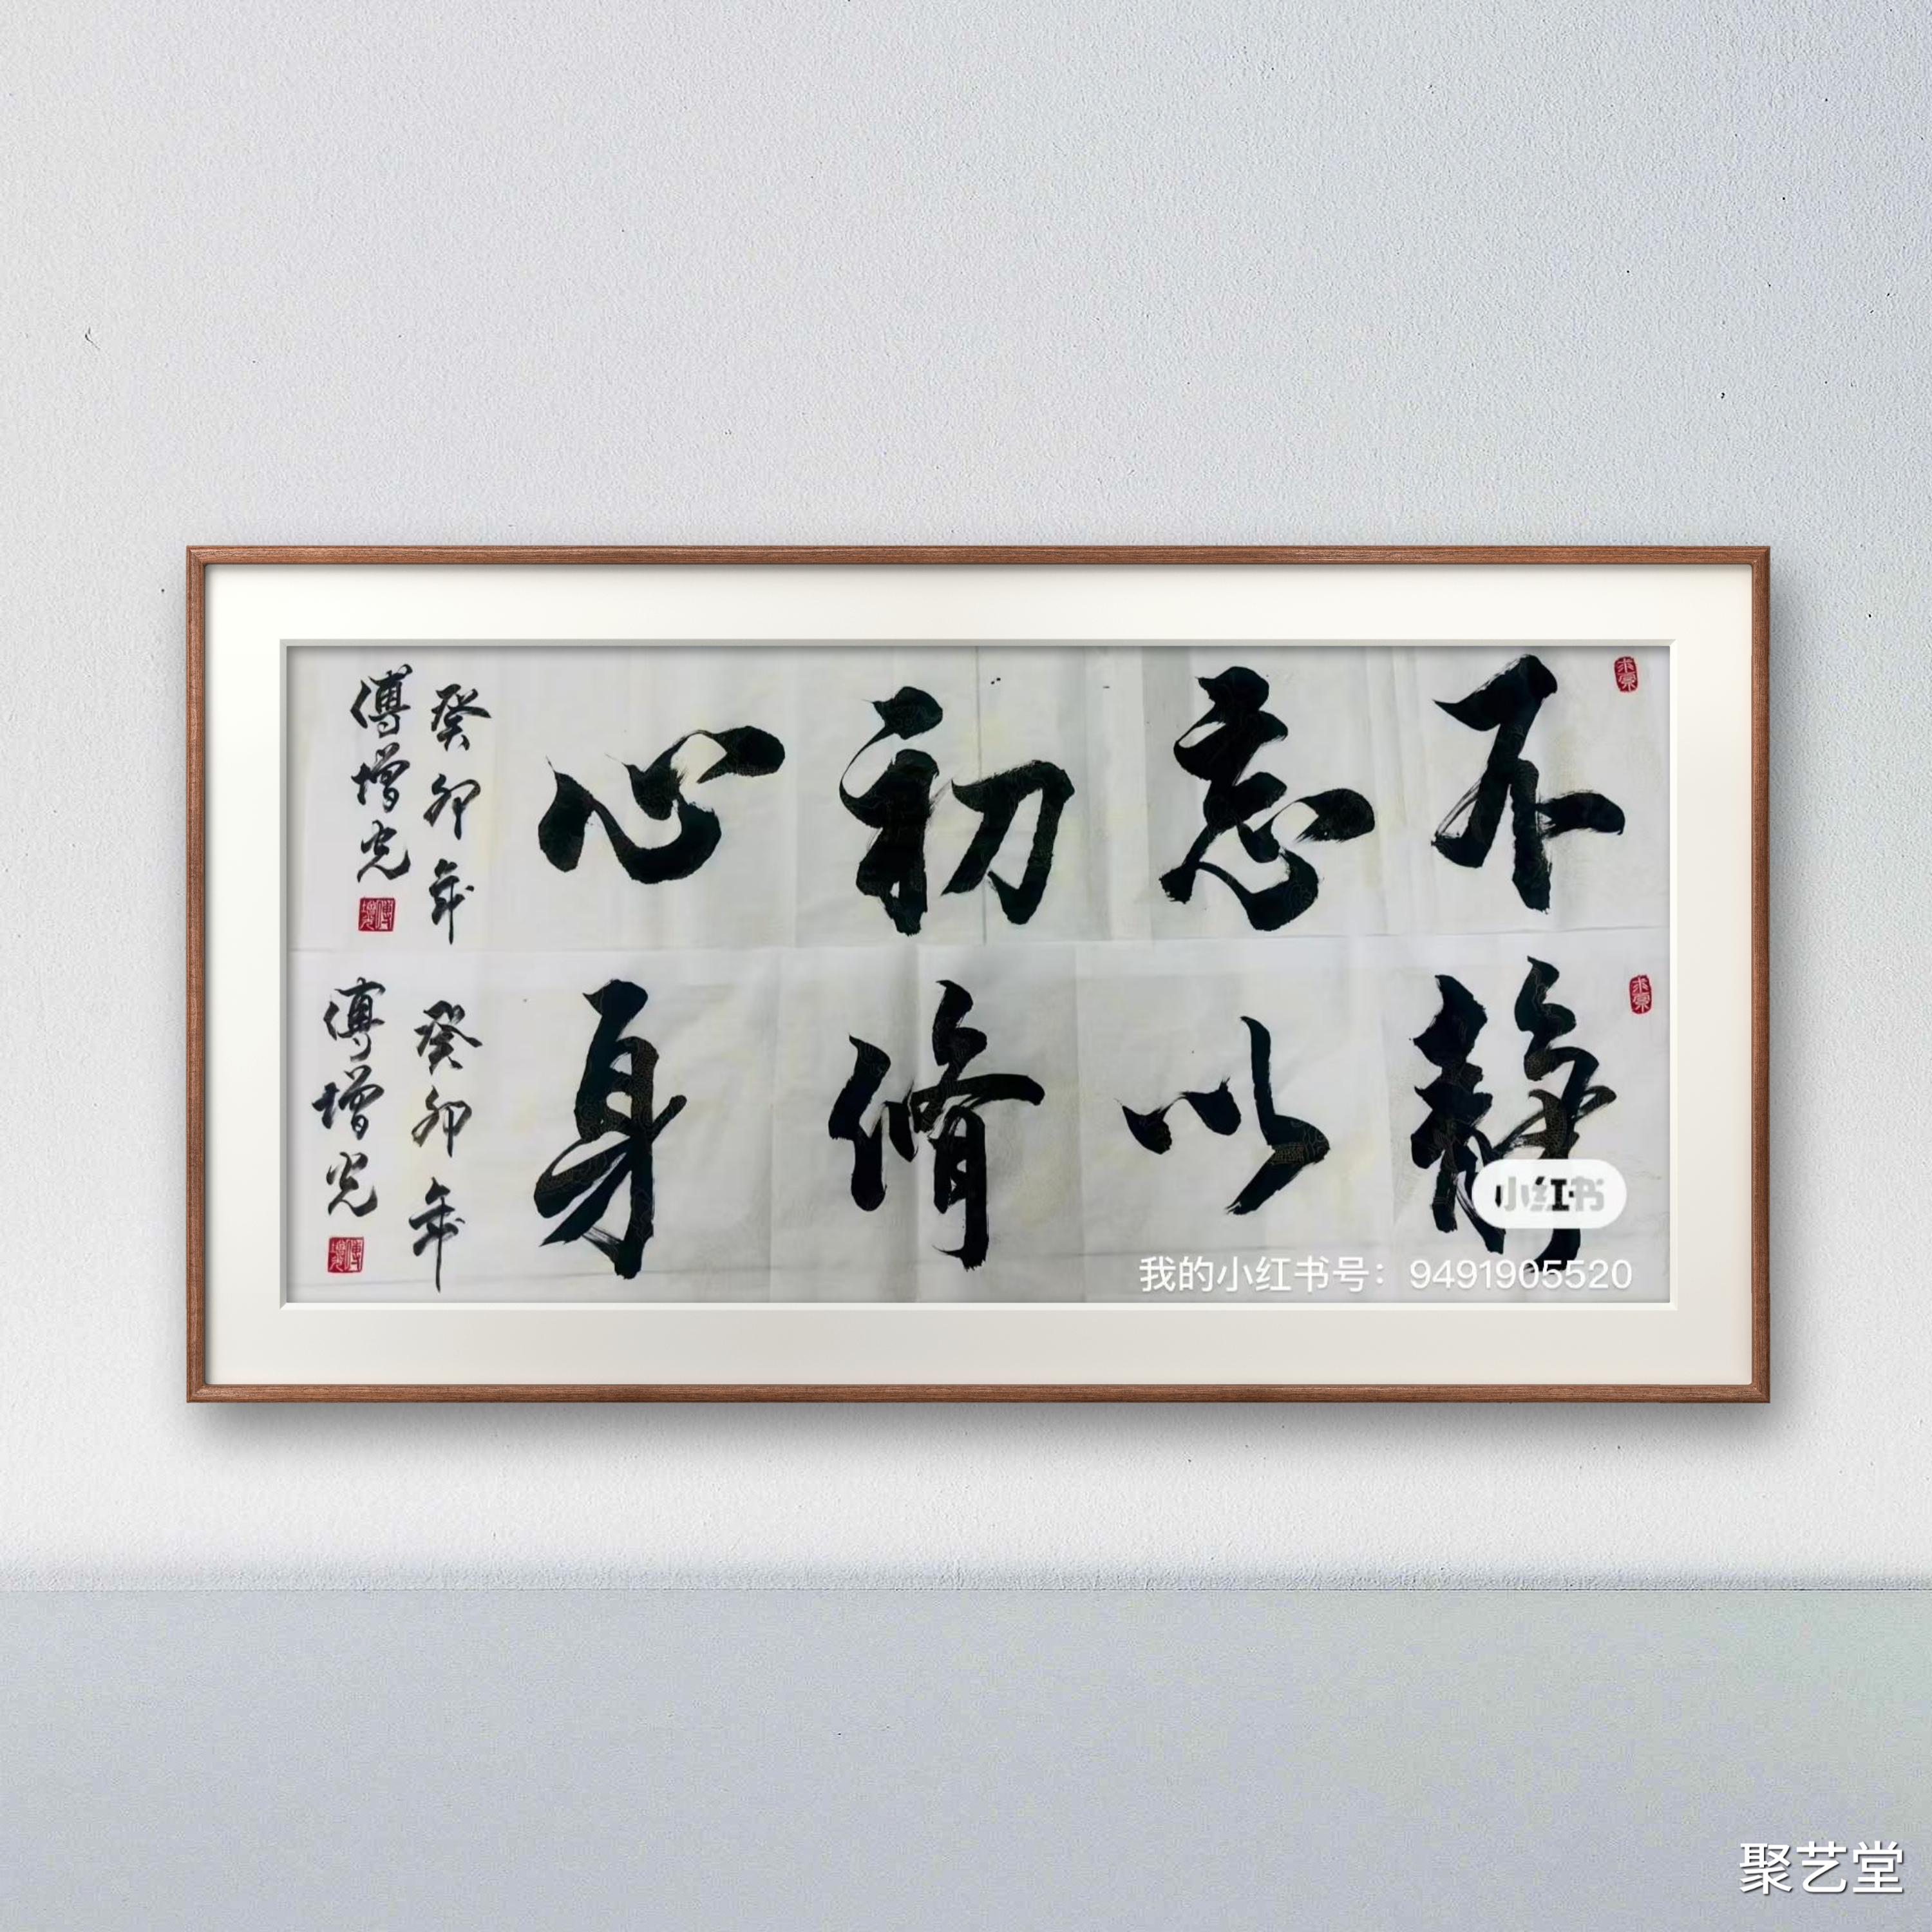 不忘初心
癸卯年
傅增光
静以脩身
癸卯年
傅增光
小红书
我的小红书号：9491905520
聚艺堂